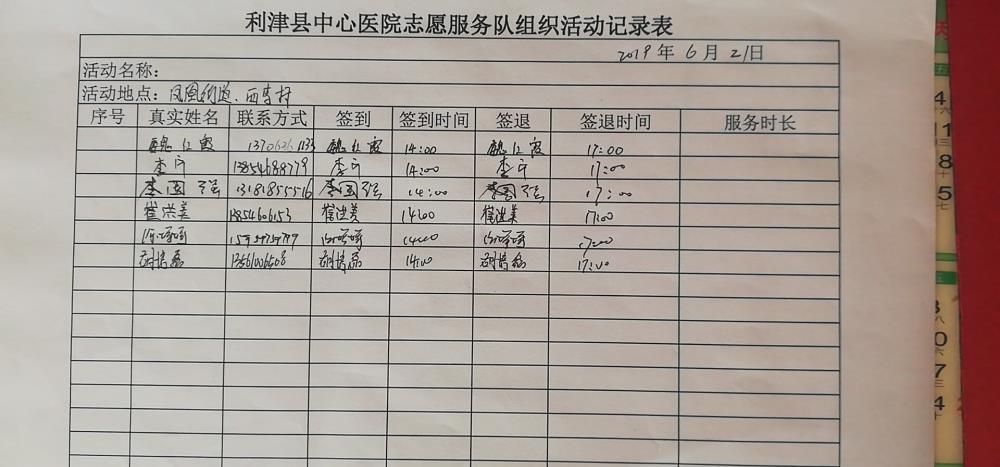 利津县中心医院志愿服务队组织活动记录表
2019 年 6 月 21日
活动名称:
活动地点: 凤凰街道、西李村
序号 真实姓名 联系方式 签到 签到时间 签退 签退时间 服务时长
魏红霞 魏红霞 14:00 魏红霞 17:00
李宁 13854688779 李宁 14:00 李宁 17:00
李国强 13181855516 李国强 14:00 李国强 17:00
崔洪美 崔洪美 14:00 崔洪美 17:00
14:00 17:00
14:00 17:00